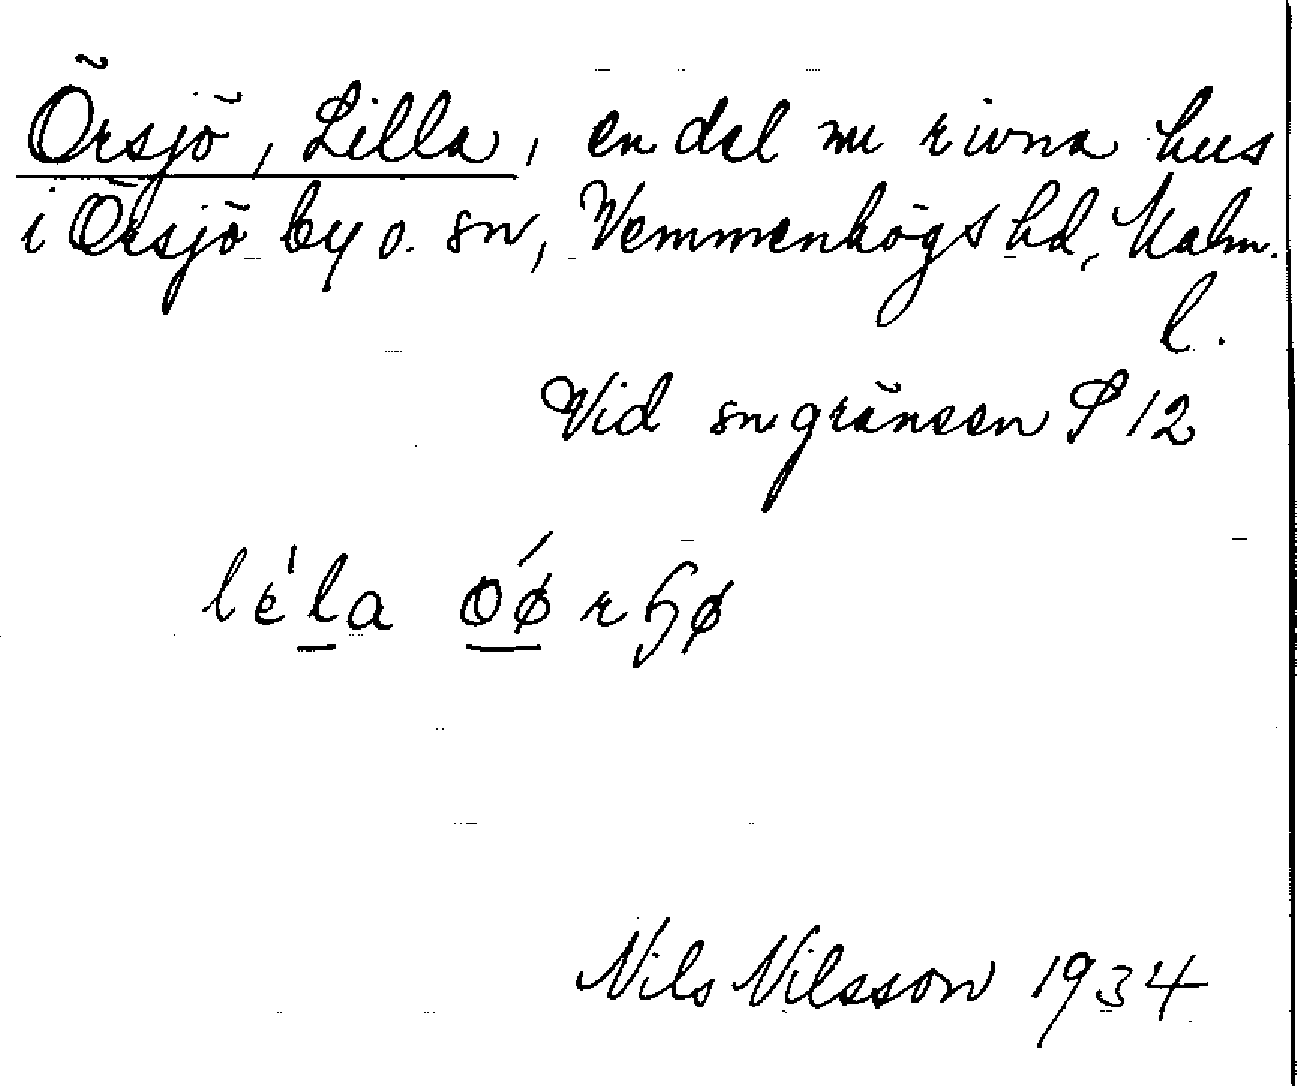 Örsjö, Lilla, en del nu rivna hus
i Örsjö by o. sn, Vemmenhögs hd, Malm.
l.
Vid sngränsen S 12
lè'la oǿrɧø
Nils Nilsson 1934